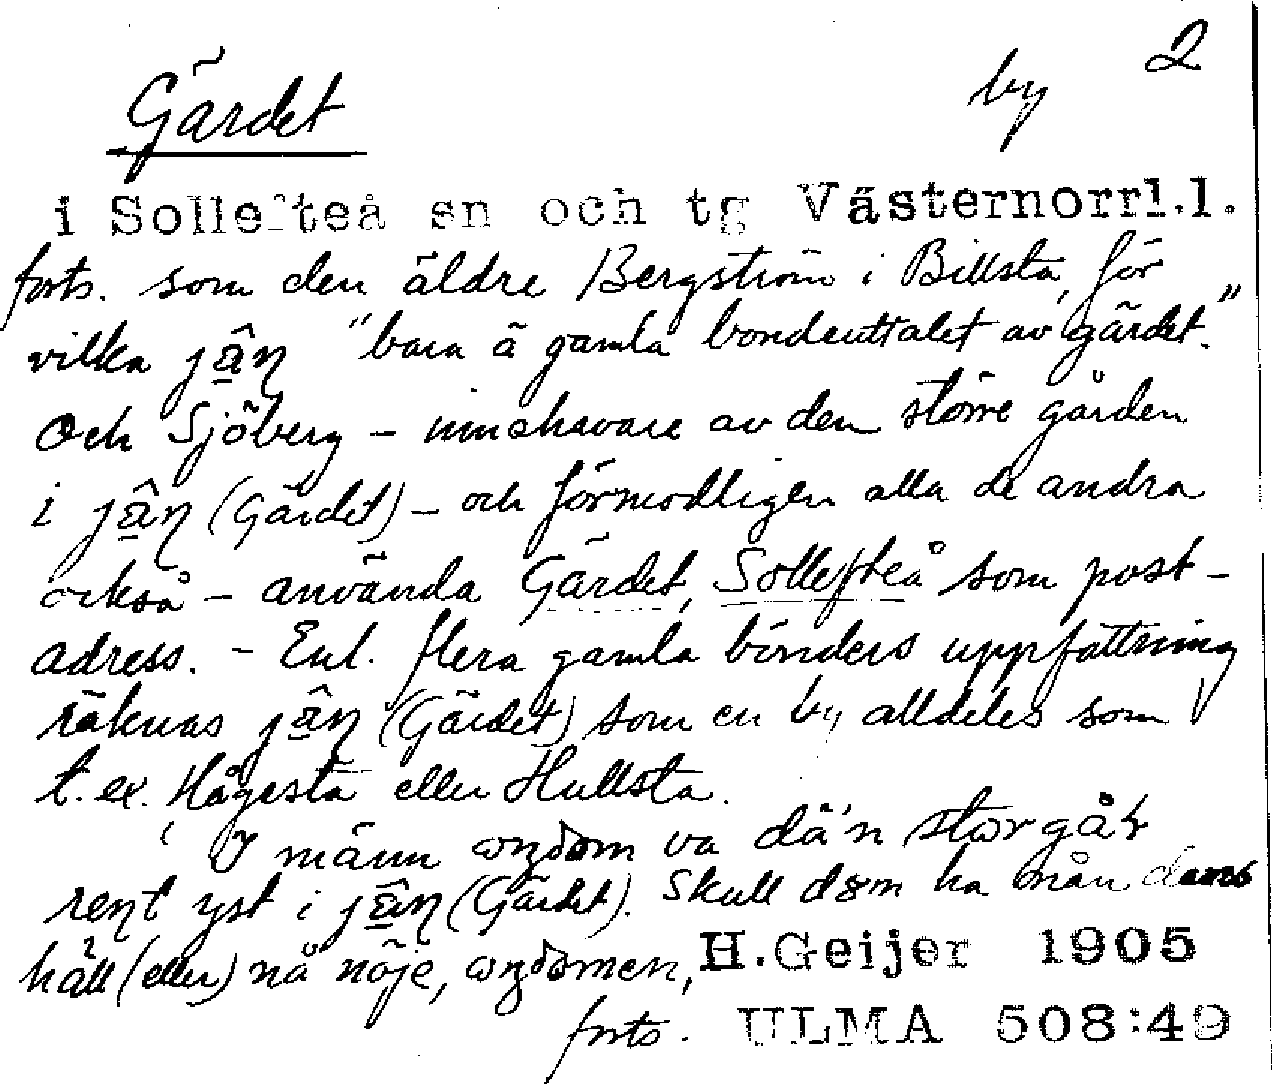 Gärdet by 2
i Sollefteå sn och tg Västernorrl.l.
forts. som den äldre Bergström i Billsta, för
vilka jâ̱ŋ "bara ä gamla bondeuttalet av gärdet."
Och Sjöberg – innehavare av den större gården
i jâ̱ŋ (Gärdet) – och förmodligen alla de andra
också – använda Gärdet, Sollefteå som post-
adress. – Enl. flera gamla bönders uppfattning
räknas jâ̱ŋ (Gärdet) som en by alldeles som
t.ex. Hågesta eller Hullsta.
I männ va dä'n stor går
rent yst i jâ̱ŋ (Gärdet). Skull dem ha nån dans
häll (eller) nå nöje,
H.Geijer 1905
forts. ULMA 508:49